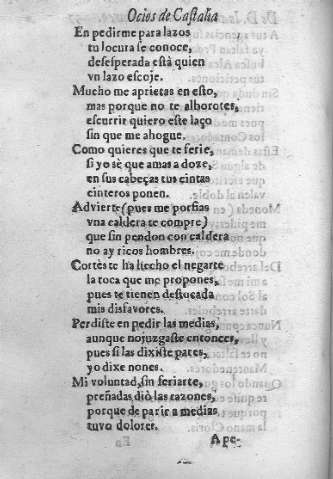 Ocios de Castalia
En pedirme para lazos
tu locura se conoce,
desesperada està quien
vn lazo escoje.
Mucho me aprietas en esto,
mas porque no te alborotes,
escurrir quiero este laço
sin que me ahogue.
Como quieres que te ferie,
si yo sè que amas a doze,
en sus cabeças tus cintas
cinteros ponen.
Advierte (pues me porfias
vna caldera te compre)
que sin pendon con caldera
no ay ricos hombres.
Cortès te ha hecho el negarte
la toca que me propones,
pues te tienen destocada
mis disfavores.
Perdiste en pedir las medias,
aunque no juzgaste entonces,
pues si las dixiste pares,
yo dixe nones.
Mi voluntad, sin feriarte,
preñadas diò las razones,
porque de parir a medias
tuvo dolores.
A pe-